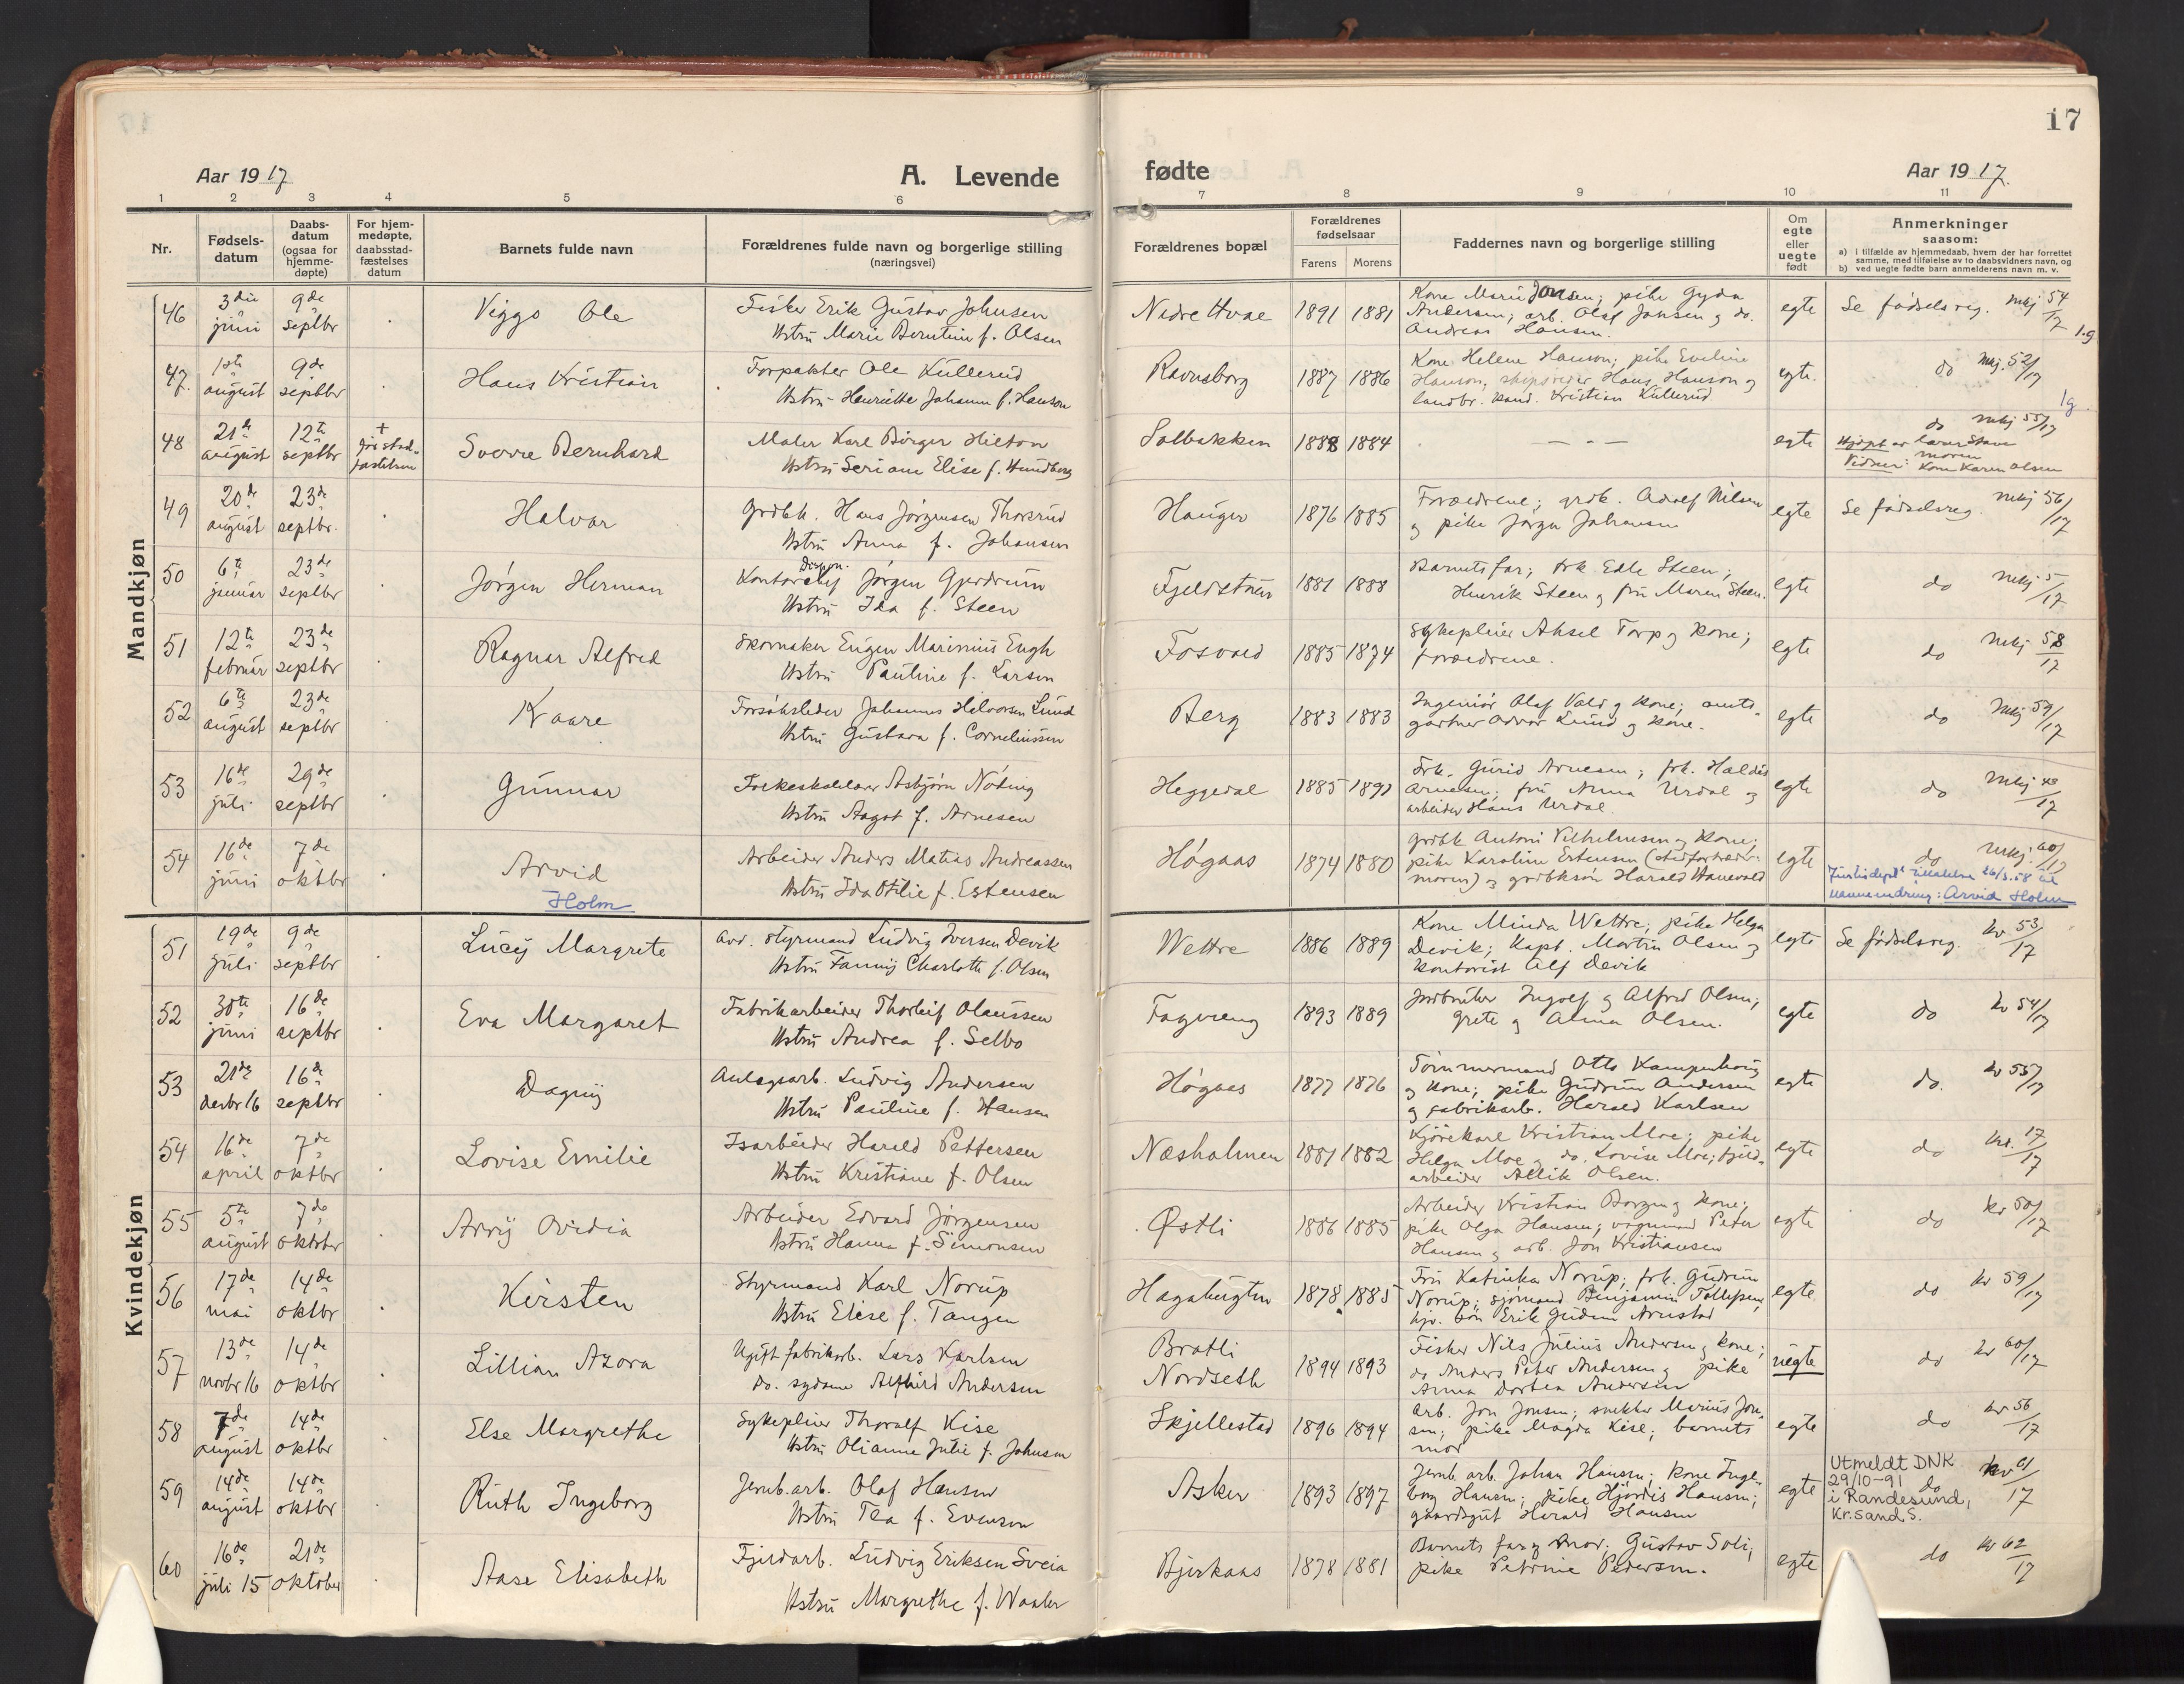 17
Aar 1917
A. Levende
fødte
Aar 1917.
1 2 3 4 5 6 7 8 9 10 11
Nr.
Fødsels-
datum
Daabs-
datum
(ogsaa for
hjemme-
døpte)
For hjem-
medøpte,
daabsstad-
fæstelses
datum
Barnets fulde navn
Forældrenes fulde navn og borgerlige stilling
(næringsvei)
Forældrenes bopæl
Forældrenes
fødselsaar
Farens Morens
Faddernes navn og borgerlige stilling
Om
egte
eller
uegte
født
Anmerkninger
saasom:
a) i tilfælde av hjemmedaab, hvem der har forrettet
samme, med tilføielse av to daabsvidners navn, og
b) ved uegte fødte barn anmelderens navn m. v.
Mandkjøn
46 3die juni 9de septbr Viggo Ole
Fisker Erik Gustav Johnsen
Hstru Marie Berntine f. Olsen
Nedre Hvae 1891 1881
Kone Marie Jonsen; pike Gyda
Andersen; arb. Olaf Jonsen og do.
Andreas Hansen.
egte Se fødselsreg. Mkj 54/17
1.g
47. 1ste august 9de septbr Hans Kristian
Forpakter Ole Kullerud
Hstru Henriette Johanne f. Hanson
Ravnsborg 1887 1886
Kone Helene Hanson; pike Eveline
Hanson, skipsreder Hans Hanson og
landbr. kand. Kristian Kullerud.
egte. do Mkj. 52/17
1g.
48 21de august 12te septbr Sverre Bernhard
Maler Karl Birger Hilton
Hstru Seriane Elise f. Hundberg
Solbakken 1888 1884
— - —
egte do Mkj 55/17
Hjdøpt av
Vidner: moren
Kone Karen Olsen
49 20de august 23de septbr. Halvor
Grdbk. Hans Jørgensen Thorsrud
Hstru Anna f. Johansen
Hauger 1876 1885
Forældrene; grdb. Adolf Nilsen
og pike Jørga Johansen
egte Se fødselsreg. Mkj 56/17
50 6te januar 23de septbr Jørgen Herman
Dispon.
Kontorchef Jørgen Gjerdrum
Hstru Ida f. Steen
Fjeldstuen 1881 1888
Barnets far; frk Edle Steen;
Henrik Steen og fru Maren Steen.
egte do Mkj 5/17
51 12te februar 23de septbr Ragnar Alfred
Skomaker Eugen Marinius Engh
Hstru Pauline f. Larsen
Fosvold 1885 1874
Sykepleier Aksel Torp og kone;
forældrene.
egte do Mkj 58/17
52 6te august 23de septbr Kaare
Forsøksleder Johannes Halvorsen Lund
Hstru Gustava f. Corneliussen
Berg 1883 1883
Ingeniør Olaf Vold og kone; amts-
gartner Advor Lund og kone.
egte do Mkj 59/17
53 16de juli 29de septbr Gunnar
Folkeskolelærer Asbjørn Nøding
Hstru Aagot f. Arnesen
Heggedal 1885
Frk. Gurid Arnesen; frk. Haldis
Arnesen; fru Anna Urdal og
arbeider Hans Urdal.
egte do Mkj 43/17
54 16de juni 7de oktbr Arvid
Holm
Arbeider Anders Matias Andreassen
Hstru Ida Otilie f. Estensen
Høgaas 1874 1880
Grdbk Antoni Vilhelmsen og kone;
pike Karoline Estensen (stedfortræder:
moren) og grdbksøn Harald Hanevold
egte do Mkj. 60/17
Justisdept's tillatelse 26/3.58 til
navneendring: Arvid Holm
Kvindekjøn
51 19de juli 9de septbr Lucy Margrete
Avd. styrmand Ludvig Iversen Devik
Hstru Fanny Charlotte f. Olsen
Wettre 1886 1889
Kone Minda Wettre; pike Helga
Devik; Kapt. Martin Olsen og
kontorist Alf Devik
egte Se fødselsreg. Kv 53/17
52 30te juni 16de septbr Eva Margaret
Fabrikarbeider Thorleif Olaussen
Hstru Andrea f. Selbo
Fagereng 1893 1889
Jordbruker Ingolf og Alfred Olsen;
Grete og Alma Olsen.
egte do Kv 54/17
53 21de desbr 16 16de septbr Dagny
Anlægsarb. Ludvig Andersen
Hstru Pauline f. Hansen
Høgaas 1877 1876
Tømmermand Otto Kampenhoug
og kone; pike Gudrun Andersen
og fabrikarb. Harald Karlsen
egte do. Kv 55/17
54 16de april 7de oktbr Lovise Emilie
Isarbeider Harald Pettersen
Hstru Kristiane f. Olsen
Næsholmen 1881 1882
Kjørekarl Kristian Moe; pike
Helga Moe og do. Lovise Moe; fjeld-
arbeider Allik Olsen.
egte do Kv. 17/17
55 5te august 7de oktober Arry Ovidia
Arbeider Edvard Jørgensen
Hstru Hanna f. Simonsen
Østli 1886 1885
Arbeider Kristian Borgen og kone;
pike Olga Hansen; vognmand Peder
Hansen og arb. Jon Kristiansen
egte do Kv 50/17
56 17de mai 14de oktbr Kirsten
Styrmand Karl Norup
Hstru Elise f. Tangen
Hagabugten 1878 1885
Fru Katinka Norup; frk. Gudrun
Norup; sjømand Benjamin Tollefsen,
Erik Gudem Arnestad
egte do Kv 59/17
57 13de novbr 16 14de oktbr Lillian Azora
Ugift fabrikarb. Lars Karlsen
do. sydame Alfhild Andersen
Bratli
Nordseth 1894 1893
Fisker Nils Julius Andersen og kone;
do Anders Peter Andersen og pike
Anna Dortea Andersen
uegte do Kv 60/17
58 7de august 14de oktbr Else Margrethe
Sykepleier Thoralf Kise
Hstru Olianne Julie f. Johnsen
Skjellestad 1896 1894
Arb. Jon Jonsen; snekker Marius Jon-
sen; pike Magda Kise; barnets
mor
egte do Kv 56/17
59 14de august 14de oktbr Ruth Ingeborg
Jernb.arb. Olaf Hansen
Hstru Tea f. Evensen
Asker 1893 1897
Jernb. arb. Johan Hansen; kone Inge-
borg Hansen; pike Hjørdis Hansen;
gaardsgut Harald Hansen
egte do Kv 61/17
Utmeldt DNK
29/10-91
i Randesund,
Kr.sand S.
60 16de juli 15 21de oktober Aase Elisabeth
Fjeldarb. Ludvig Eriksen Sveia
Hstru Margrethe f. Waaler
Bjerkaas 1878 1881
Barnets far og mor; Gustav Soli;
pike Petrine Pedersen.
egte do Kv 62/17